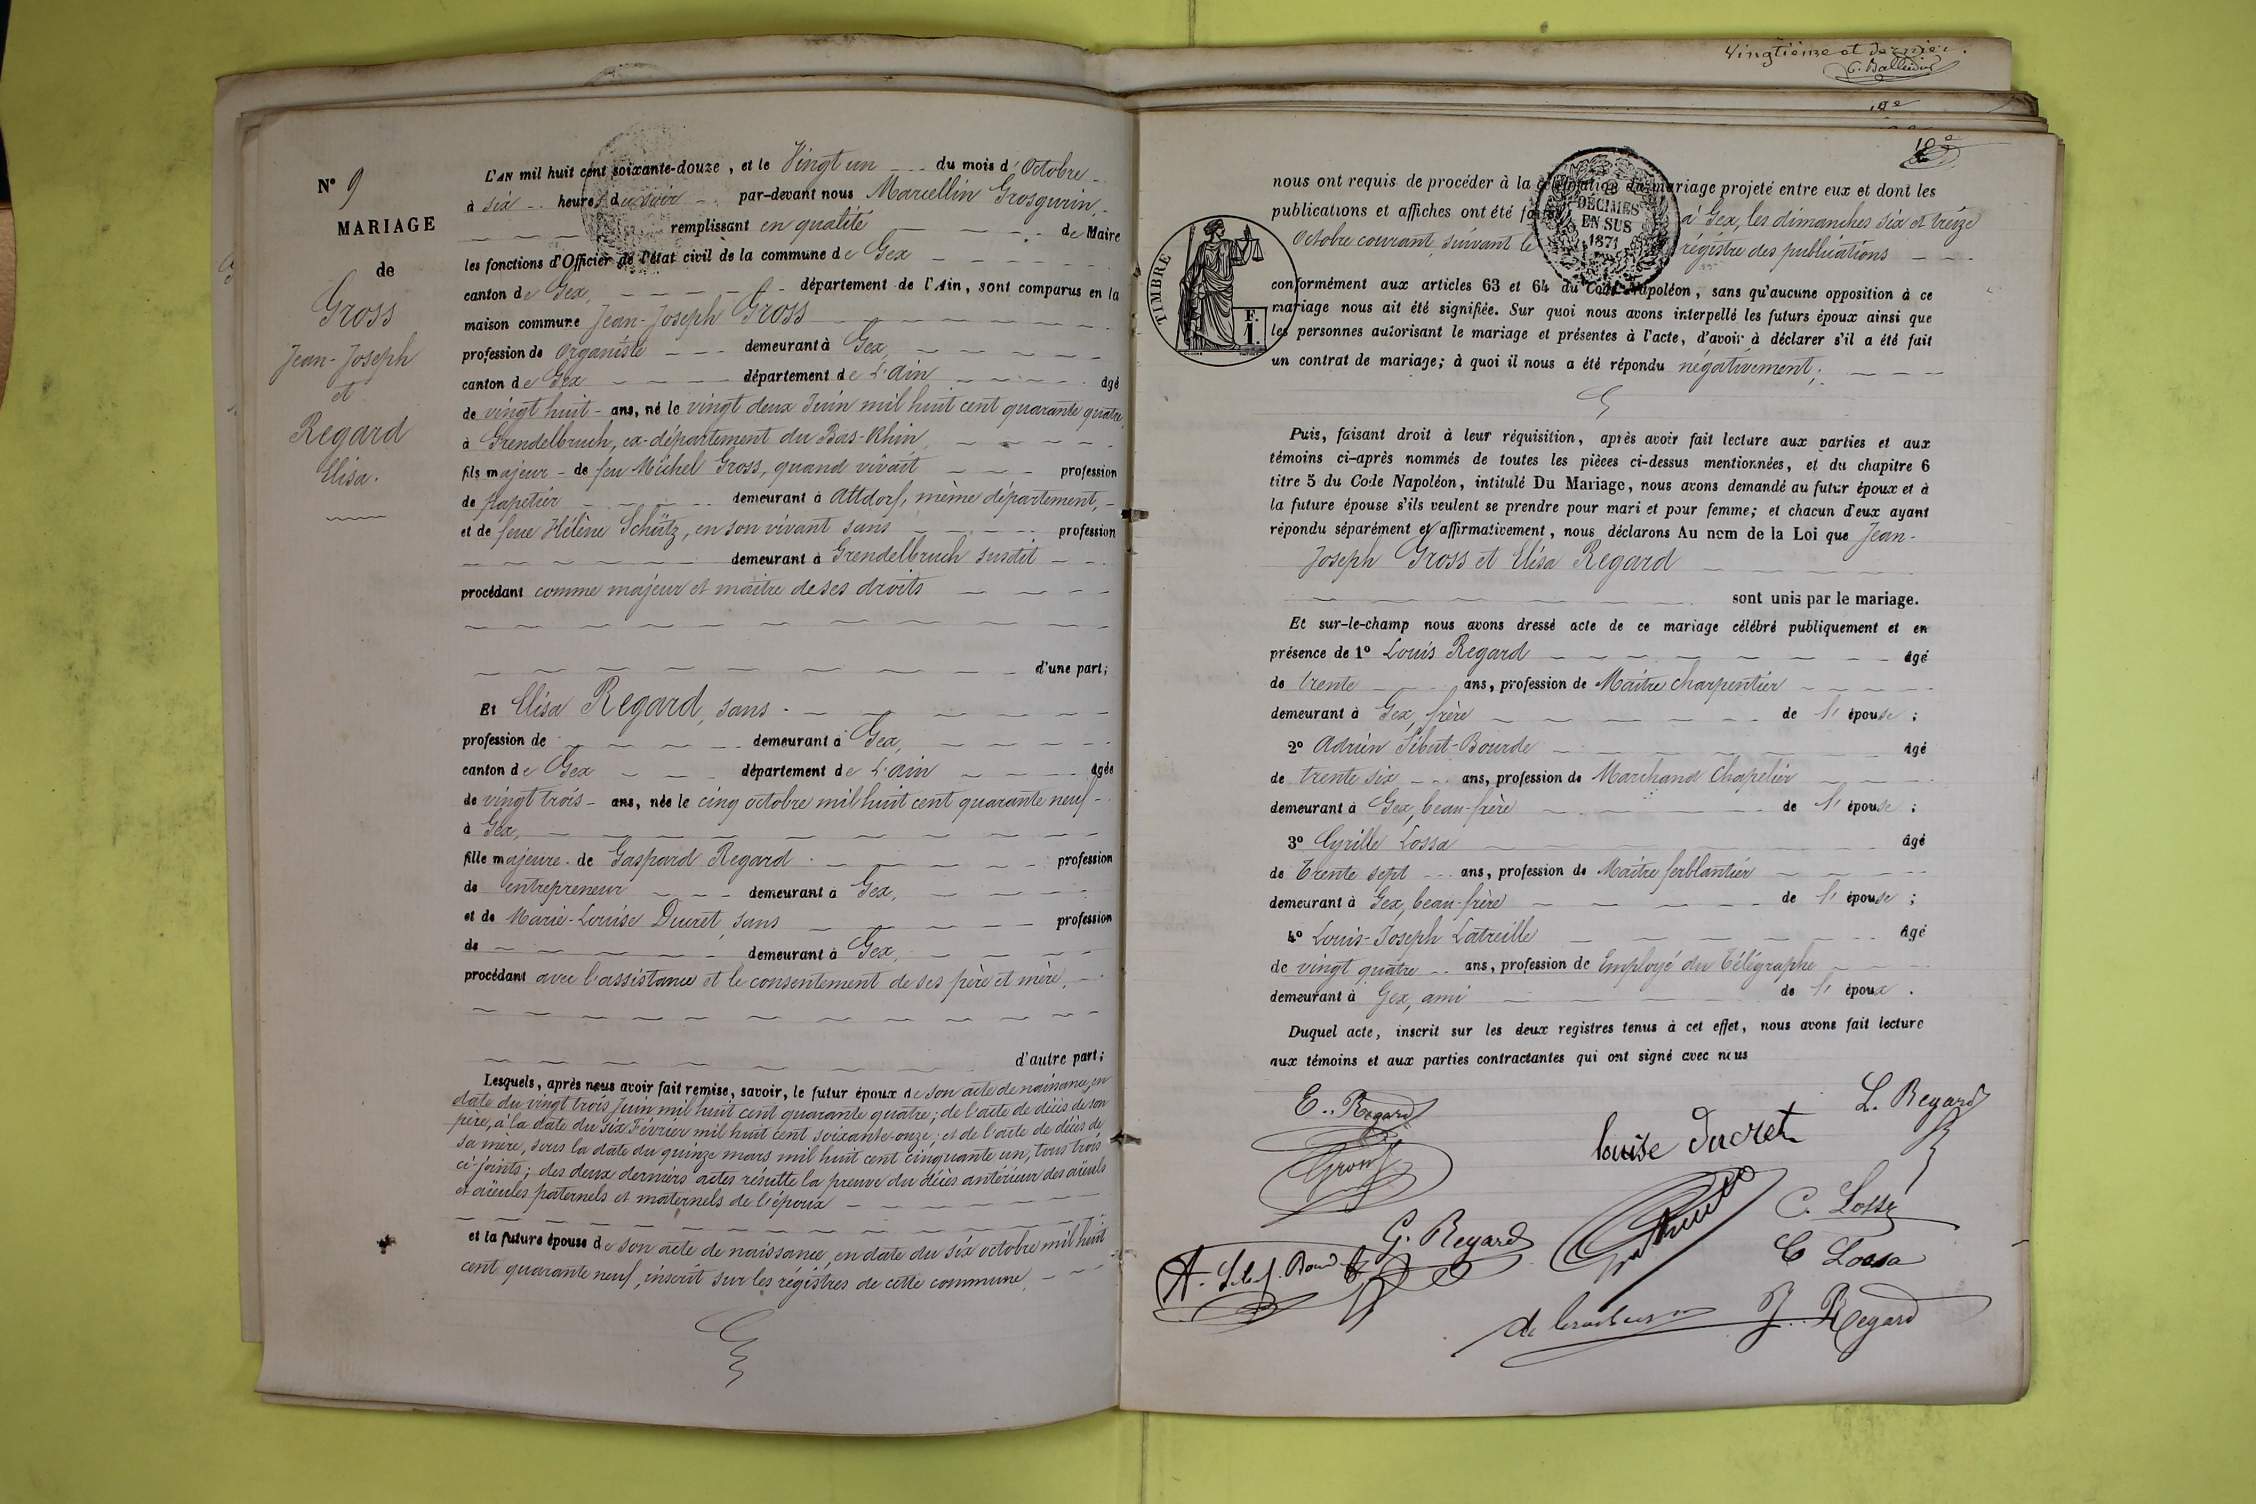 Vingtième et dernier.
19e
18e
N° 9
MARIAGE
de
Gross
Jean-Joseph
et
Regard
Elisa.
L'AN mil huit cent soixante-douze, et le Vingt un du mois d'Octobre
à six heures du soir par-devant nous Marcellin Grosgurin,
remplissant en qualité de Maire
les fonctions d'Officier de l'état civil de la commune de Gex
canton de Gex, département de l'Ain, sont comparus en la
maison commune Jean-Joseph Gross
profession de organiste demeurant à Gex,
canton de Gex département de L'Ain âgé
de vingt huit ans, né le vingt deux Juin mil huit cent quarante quatre,
à Grendelbruch, ex-département du Bas-Rhin,
fils majeur de feu Michel Gross, quand vivait profession
de papetier demeurant à Altdorf, même département,
et de feue Hélène Schütz, en son vivant sans profession
demeurant à Grendelbruch susdit
procédant comme majeur et maître de ses droits
d'une part;
Et Elisa Regard, sans
profession de demeurant à Gex,
canton de Gex département de L'Ain âgée
de vingt trois ans, née le cinq octobre mil huit cent quarante neuf
à Gex,
fille majeure de Gaspard Regard profession
de entrepreneur demeurant à Gex,
et de Marie-Louise Ducret, sans profession
de demeurant à Gex,
procédant avec l'assistance et le consentement de ses père et mère,
d'autre part;
Lesquels, après nous avoir fait remise, savoir, le futur époux de son acte de naissance, en
date du vingt trois Juin mil huit cent quarante quatre; de l'acte de décès de son
père, à la date du six Février mil huit cent soixante-onze; et de l'acte de décès de
sa mère, sous la date du quinze mars mil huit cent cinquante un, tous trois
ci-joints; des deux derniers actes résulte la preuve du décès antérieur des aïeuls
et aïeules paternels et maternels de l'époux
et la future épouse de son acte de naissance, en date du six octobre mil huit
cent quarante neuf, inscrit sur les régistres de cette commune,
TIMBRE
F.
1.
2
DÉCIMES
EN SUS
1871
nous ont requis de procéder à la célébration du mariage projeté entre eux et dont les
publications et affiches ont été à Gex, les dimanches six et treize
Octobre courant, suivant le régistre des publications
conformément aux articles 63 et 64 du Code Napoléon, sans qu'aucune opposition à ce
mariage nous ait été signifiée. Sur quoi nous avons interpellé les futurs époux ainsi que
les personnes autorisant le mariage et présentes à l'acte, d'avoir à déclarer s'il a été fait
un contrat de mariage; à quoi il nous a été répondu négativement;
Puis, faisant droit à leur réquisition, après avoir fait lecture aux parties et aux
témoins ci-après nommés de toutes les pièces ci-dessus mentionnées, et du chapitre 6
titre 5 du Code Napoléon, intitulé Du Mariage, nous avons demandé au futur époux et à
la future épouse s'ils veulent se prendre pour mari et pour femme; et chacun d'eux ayant
répondu séparément et affirmativement, nous déclarons Au nom de la Loi que Jean-
Joseph Gross et Elisa Regard
sont unis par le mariage.
Et sur-le-champ nous avons dressé acte de ce mariage célébré publiquement et en
présence de 1° Louis Regard âgé
de trente ans, profession de Maître charpentier
demeurant à Gex, frère de l'épouse;
2° Adrien Sibut-Bourde âgé
de trente six ans, profession de Marchand Chapelier
demeurant à Gex, beau-frère de l'épouse;
3° Cyrille Lossa âgé
de Trente sept ans, profession de Maître ferblantier
demeurant à Gex, beau-frère de l'épouse;
4° Louis-Joseph Latreille âgé
de vingt quatre ans, profession de Employé du Télégraphe
demeurant à Gex, ami de l'époux.
Duquel acte, inscrit sur les deux registres tenus à cet effet, nous avons fait lecture
aux témoins et aux parties contractantes qui ont signé avec nous
E. Regard
L. Regard
louise ducret
Gross
C. Lossa
G. Regard
C Lossa
J. Regard